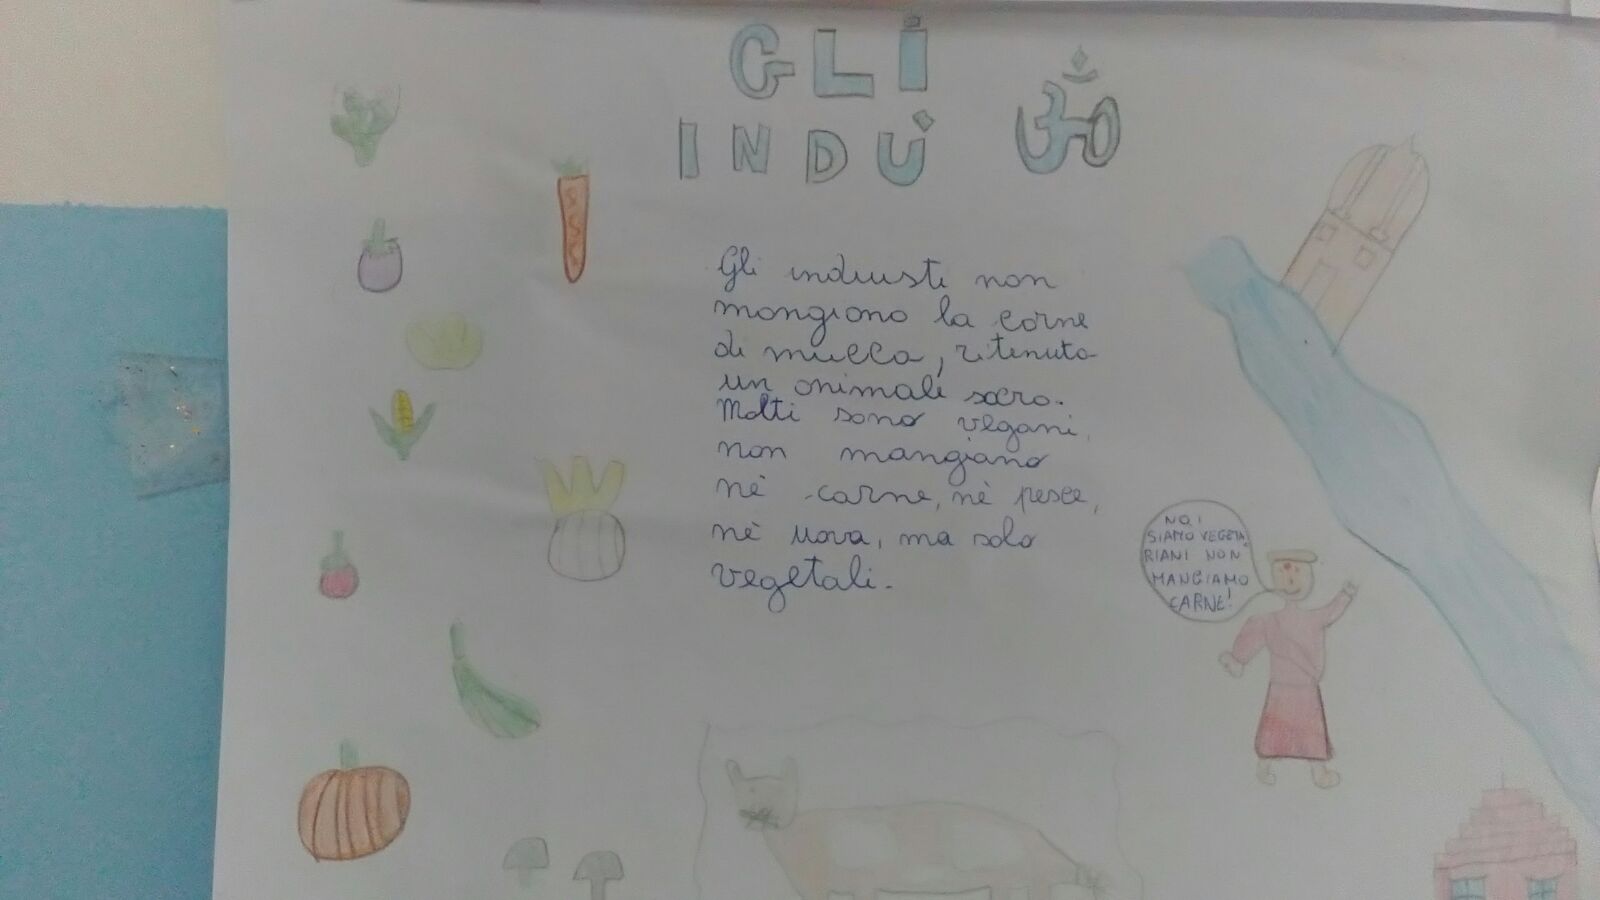 GLI
INDÙ
ॐ
Gli induisti non
mangiano la carne
di mucca, ritenuta
un animale sacro.
Molti sono vegani,
non mangiano
nè carne, nè pesce,
nè uova, ma solo
vegetali.
NOI
SIAMO VEGETA
RIANI NON
MANGIAMO
CARNE!